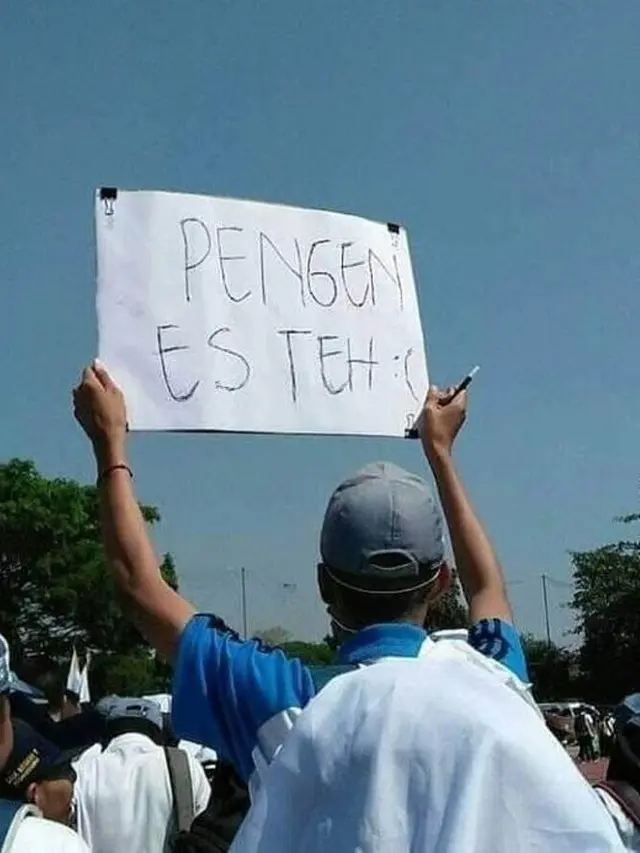 PENGEN
ES TEH :(